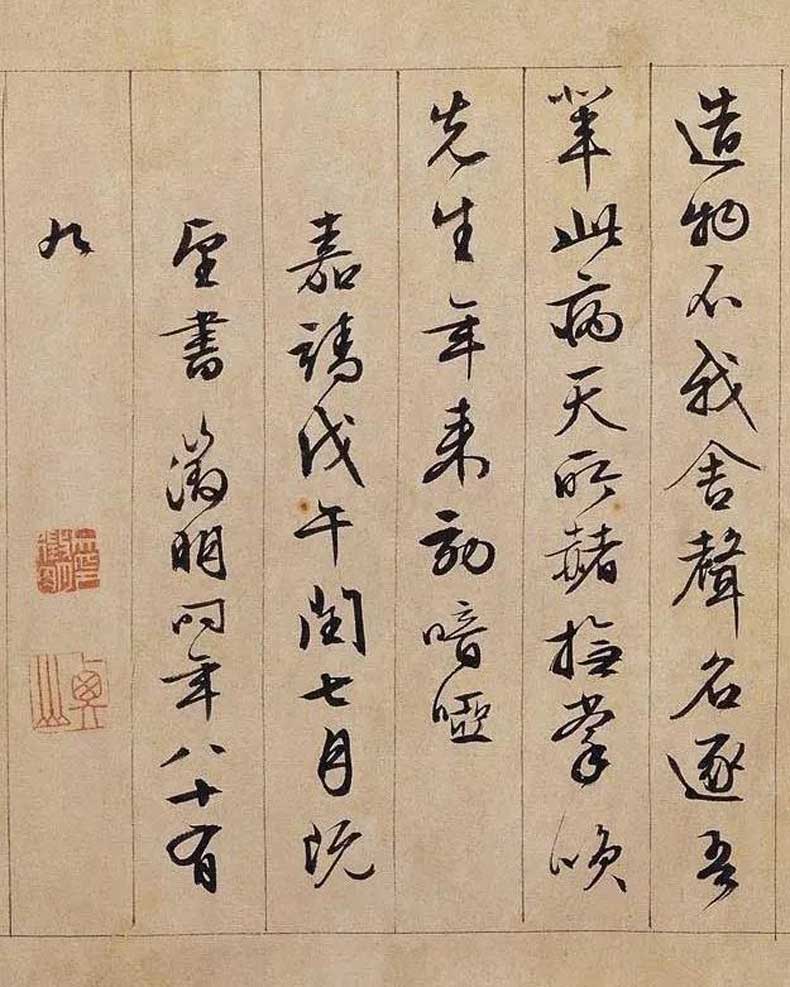 造物不我舍聲名逐吾
輩此病天所赭撫掌喚
先生年来効喑啞
嘉靖戊午閏七月既
望書 徵明時年八十有
九